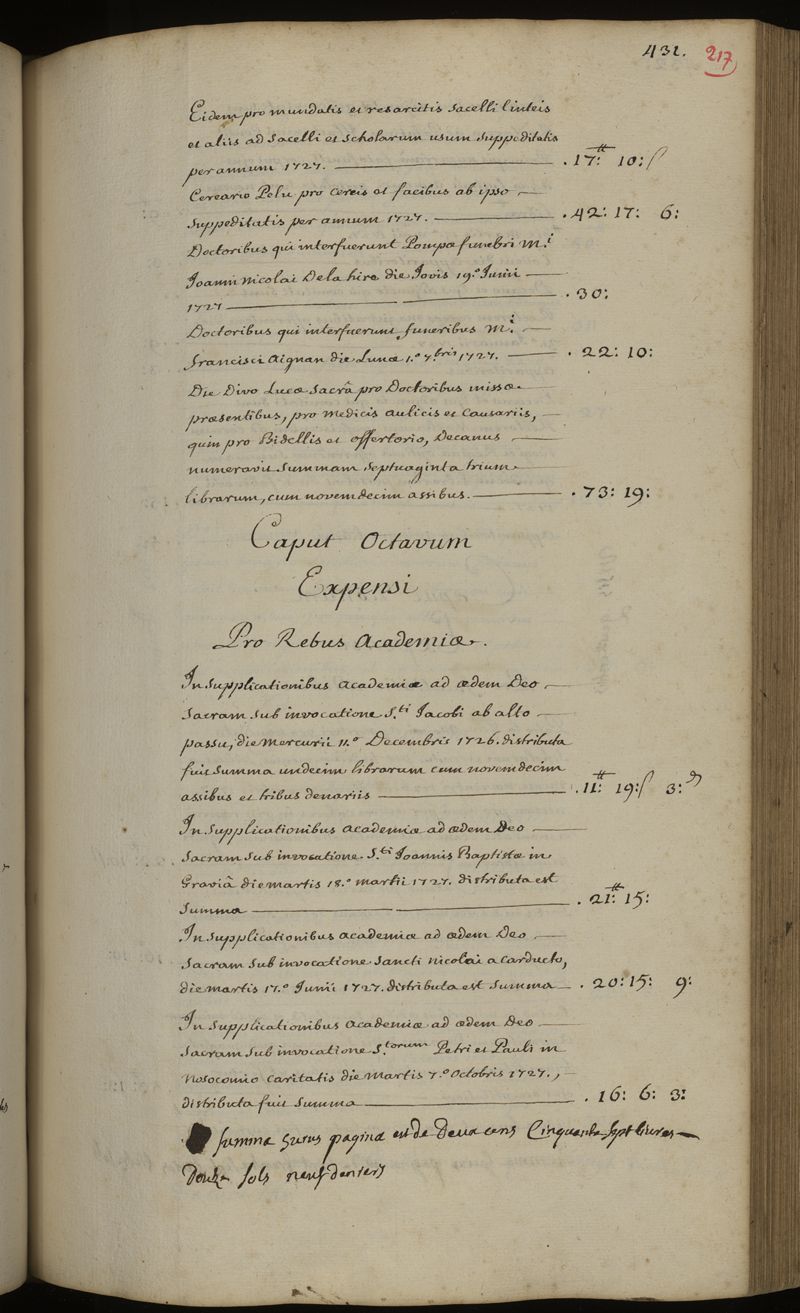 431. 217
Eidem pro mundatis et resarcitis Sacelli linteis
et aliis ad Sacelli et Scholarum usum Suppeditatis
per annum 1727. . 17:tt 10: ſ
Cereario Pelu pro Cereis et facibus ab ipso
Suppeditatis per annum 1727. . 42: 17: 6:
Doctoribus qui interfuerunt Pompæ funebri M.i
Joanni Nicolai De la hire die Jovis 19.o Junii
1727 . 30:
Doctoribus qui interfuerunt funeribus M.i
francisci Aignan die Lunæ 1.o 7.bris 1727. . 22: 10:
Die Divo Lucæ Sacrâ pro Doctoribus missæ
præsentibus, pro Medicis Aulicis et Causariis,
quin pro Bidellis et offertorio, Decanus
numeravit Summam Septuaginta trium
librarum, cum novemdecim assibus. . 73: 19:
Caput Octavum
Expensi
Pro Rebus Academiæ.
In Supplicationibus Academiæ ad ædem Deo
Sacram Sub invocatione S.ti Jacobi ab alto
passu, die Mercurii 11.o Decembris 1726. distributa
fuit Summa undecim librarum cum novemdecim
assibus et tribus denariis . 11:tt 19: ſ 3:d
In Supplicationibus Academiæ ad ædem Deo
Sacram Sub invocatione S.ti Joannis Baptistæ in
Graviâ die martis 18.o martii 1727. distributa est
Summa . 21:tt 15:
In Supplicationibus Academiæ ad ædem Deo
Sacram Sub invocatione Sancti Nicolai a Carducto,
die martis 17.o Junii 1727. distributa est Summa . 20: 15: 9:
In Supplicationibus Academiæ ad ædem Deo
Sacram Sub invocatione S.torum Petri et Pauli in
Nosocomio Caritatis die Martis 7.o Octobris 1727.,
distributa fuit Summa . 16: 6: 3:
summa hujus pagina est de Deux cens Cinquante sept livres
Douze sols neuf deniers